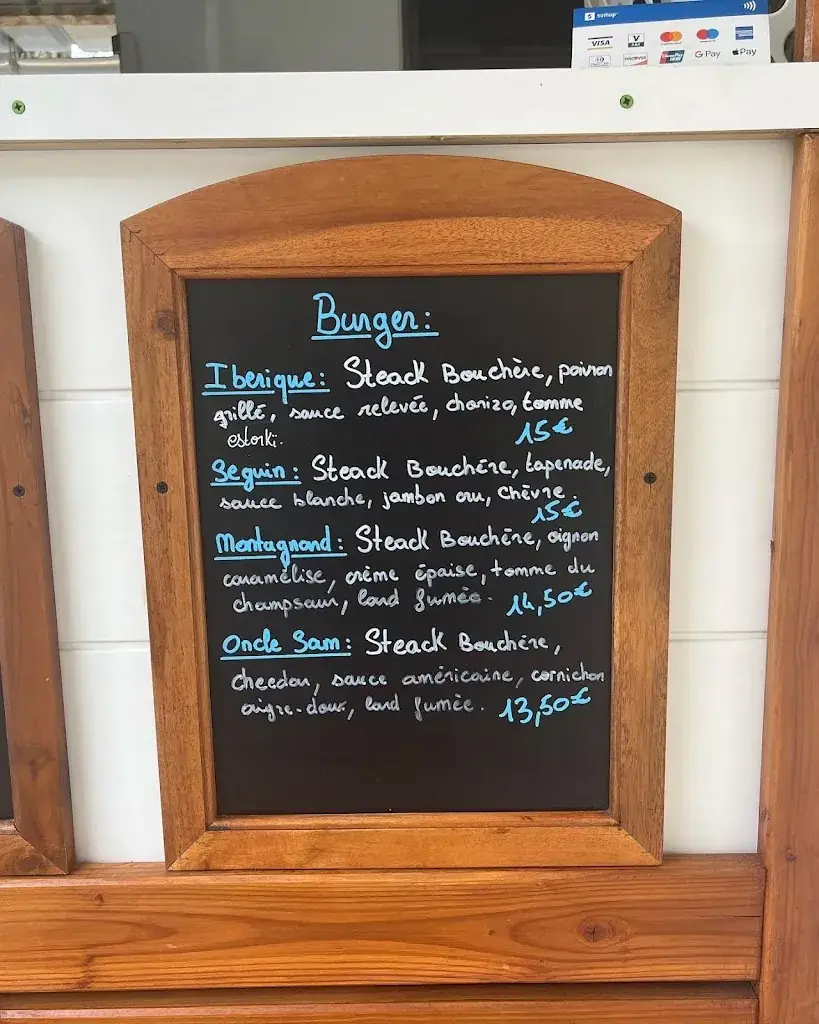 sumup
VISA V PAY
DISCOVER G Pay Pay
Burger:
Iberique: Steack Bouchère, poivron
grillé, sauce relevée, chorizo, tomme
estorki. 15€
Seguin: Steack Bouchère, tapenade,
sauce blanche, jambon cru, chèvre.
15€
Montagnard: Steack Bouchère, oignon
caramélise, crème épaise, tomme du
champsaur, lard fumée. 14,50€
Oncle Sam: Steack Bouchère,
cheedar, sauce américaine, cornichon
aigre-doux, lard fumée. 13,50€